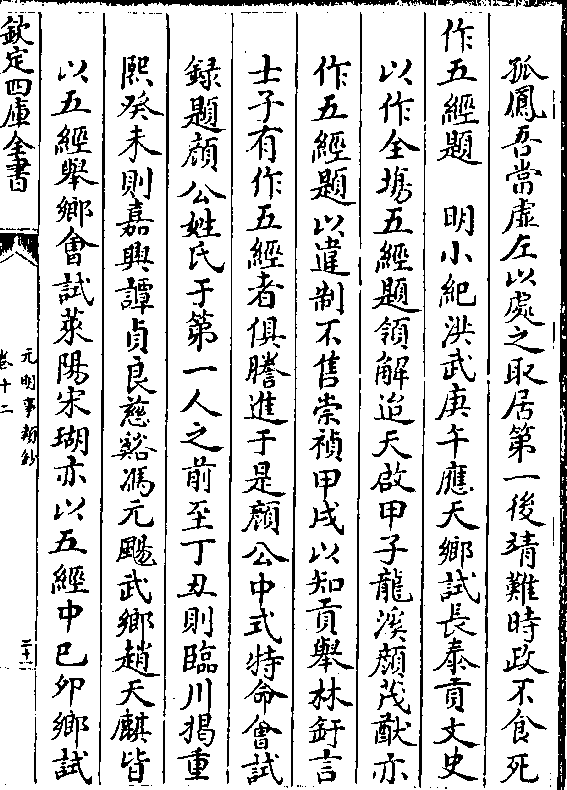 孤鳳吾當虛左以處之取居第一後靖難時政不食死
作五經題　明小紀洪武庚午應天鄉試長泰貢文史
以作全塲五經題領解迨天啟甲子龍溪顔茂猷亦
作五經題以違制不售崇禎甲戌以知貢舉林釬言
士子有作五經者俱謄進于是顔公中式特命會試
録題顔公姓氏于第一人之前至丁丑則臨川揭重
熙癸未則嘉興譚貞良慈谿馮元颺武鄉趙天麒皆
以五經舉鄉會試萊陽宋瑚亦以五經中己卯鄉試
欽定四庫全書
元明事類鈔
卷十二
二十一